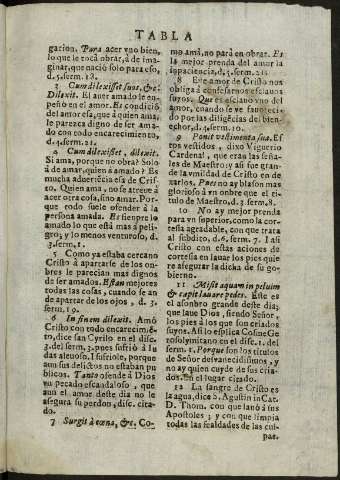 TABLA
gacion. Para acer vno bien,
lo que le tocà obrar, à de ima-
ginar, que naciò solo para eso,
d.5.serm.18.
3 Cum dilexisset suos, &c.
Dilexit. El auer amado le en-
peñò en el amor. Es condiciõ
del amor esa, que à quien ama,
le parezca digno de ser ama-
do con todo encarecimiento,
d.4.serm.21.
4 Cum dilexisset, dilexit.
Si ama, porque no obra? Solo
à de amar, quien à amado? Es
mucha aduertẽcia esa de Cris-
to. Quien ama, no se atreue à
acer otra cosa, sino amar. Por-
que todo suele ofender à la
persona amada. Es sienpre lo
amado lo que està mas a peli-
gro; y lo menos venturoso, d.
3.serm.1.
5 Como ya estaba cercano
Cristo à apartarse de los on-
bres le parecian mas dignos
de ser amados. Estan mejores
todas las cosas, quando se an
de apartar de los ojos, d. 3.
serm.19.
6 In finem dilexit. Amò
Cristo con todo encarecimiẽ-
to, dice san Cyrilo en el disc.
3.del serm.3. pues sufriò à Iu-
das aleuoso. I sufriole, porque
aun sus delictos no estaban pu-
blicos. Tanto ofende à Dios
vn pecado escandaloso, que
aun el amor deste dia no le
asegura su perdon, disc. cita-
do.
7 Surgit à cœna, &c. Co-
mo amà, no parà en obrar. Es
la mejor prenda del amor la
inpaciencia, d.5.serm.21.
8 Ese amor de Cristo nos
obliga à confesarnos esclauos
suyos. Que es esclauo vno del
amor, cuando se ve fauoreci-
do por las diligẽcias del bien-
echor, d.4.serm.10.
9 Ponit vestimenta sua. Es-
tos vestidos, dixo Viguerio
Cardenal, que eran las seña-
les de Maestro; y asi fue gran-
de la vmildad de Cristo en de-
xarlos. Pues no ay blason mas
glorioso à vn onbre que el ti-
tulo de Maestro, d.3.serm.8.
10 No ay mejor prenda
para vn superior, como la cor-
tesia agradable, con que trata
al subdito, d.6.serm.7. I asi
Cristo con estas aciones de
cortesia en lauar los pies quie
re asegurar la dicha de su go-
bierno.
11 Misit aquam in peluim
& cœpit lauare pedes. Este es
el asonbro grande deste dia;
que laue Dios, siendo Señor,
los pies à los que son criados
suyos. Asi lo esplica Cosme Ge
rosolymitano en el disc.1. del
serm.1. Porque son los titulos
de Señor desvanecidisimos, y
no ay quien cuyde de sus cria-
dos. en el lugar citado.
12 La sangre de Cristo es
la agua, dice S. Agustin in Cat.
D. Thom. con que lauò à sus
Apostoles; y con que limpia
todas las fealdades de las cul-
pas.